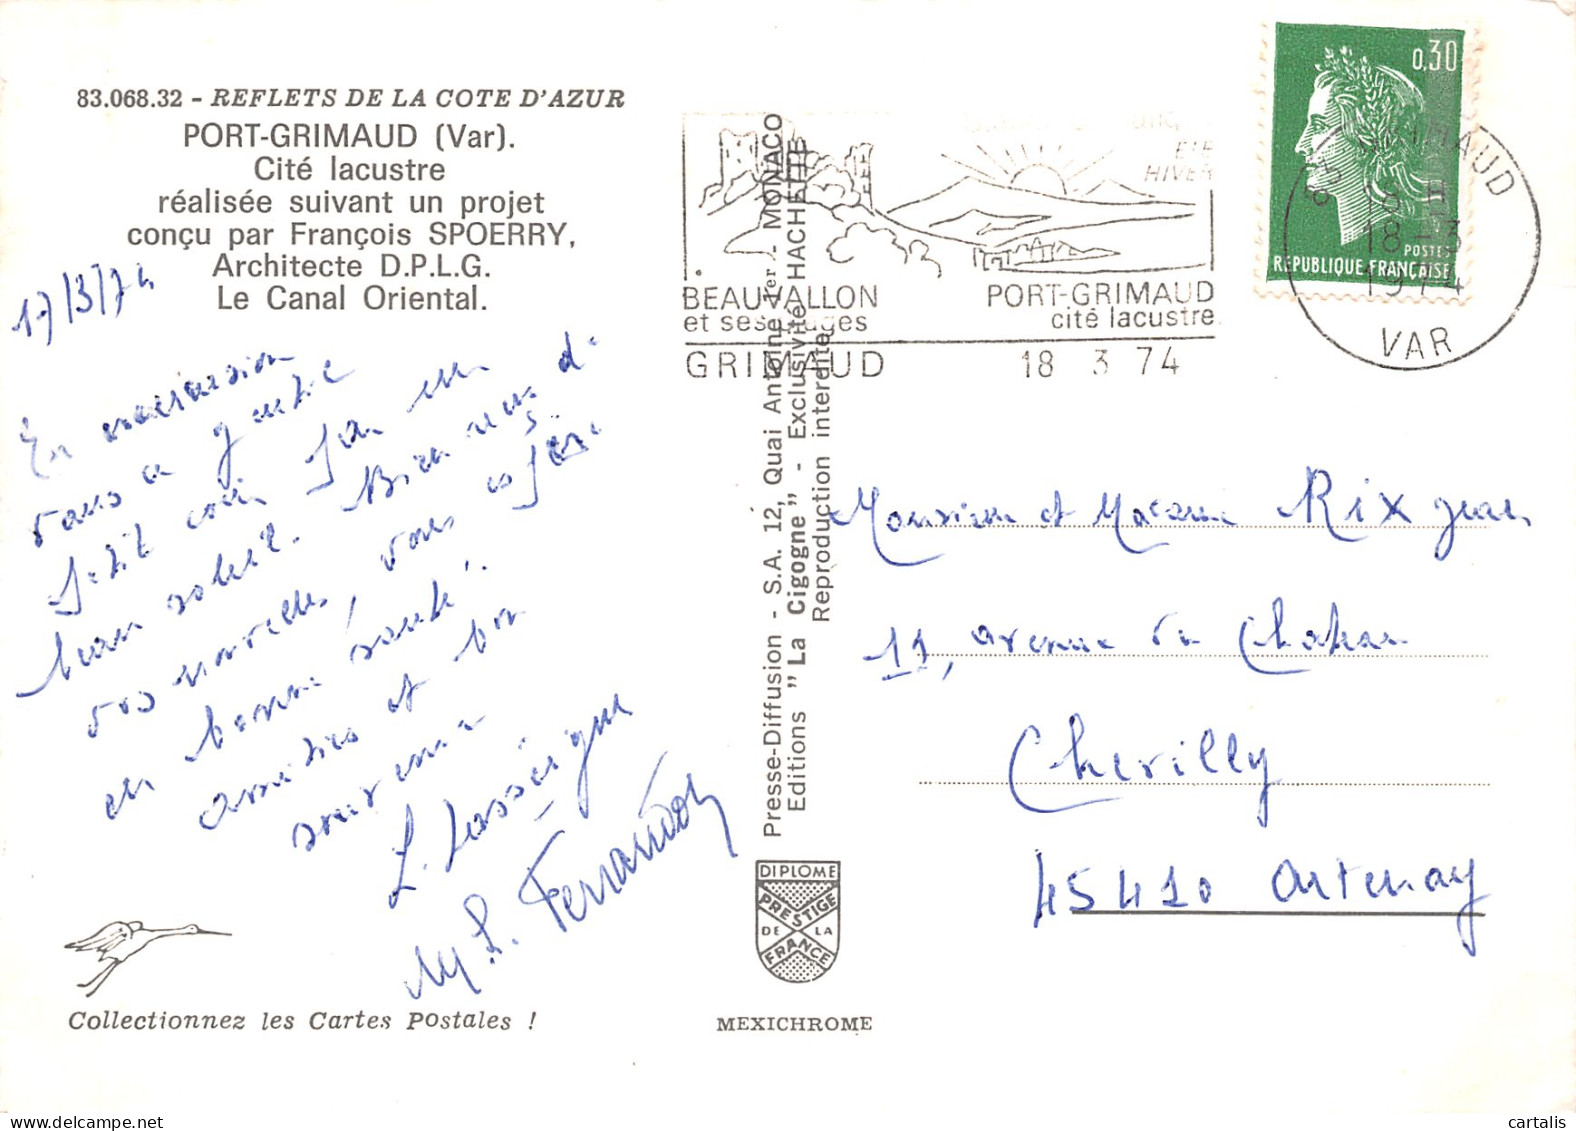 83.068.32 - REFLETS DE LA COTE D'AZUR
PORT-GRIMAUD (Var).
Cité lacustre
réalisée suivant un projet
conçu par François SPOERRY,
Architecte D.P.L.G.
Le Canal Oriental.
17/3/74
En excursion
dans ce
petit coin par un
beau soleil. Bien reçu
vos nouvelles, vous
en bonne santé.
amitiés et bon
souvenir
L. Lasseigne
M. L. Ferrandon
Collectionnez les Cartes Postales !
Presse-Diffusion - S.A. 12, Quai Antoine 1er - MONACO
Editions "La Cigogne" - Exclusivité HACHETTE
Reproduction interdite
DIPLOME
PRESTIGE
DE LA
FRANCE
MEXICHROME
ETE
HIVER
BEAUVALLON
et ses plages
PORT-GRIMAUD
cité lacustre
GRIMAUD 18 3 74
0,30
POSTES
REPUBLIQUE FRANÇAISE
83 GRIMAUD
18 H
18 - 3
1974
VAR
Monsieur et Madame RIX Jean
11, avenue du Château
Chevilly
45410 Artenay
cartalis